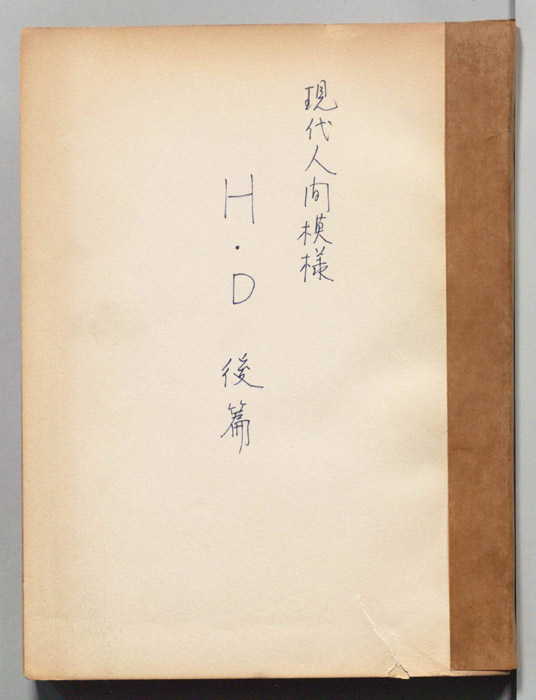 現代人间模様
H・D 後篇